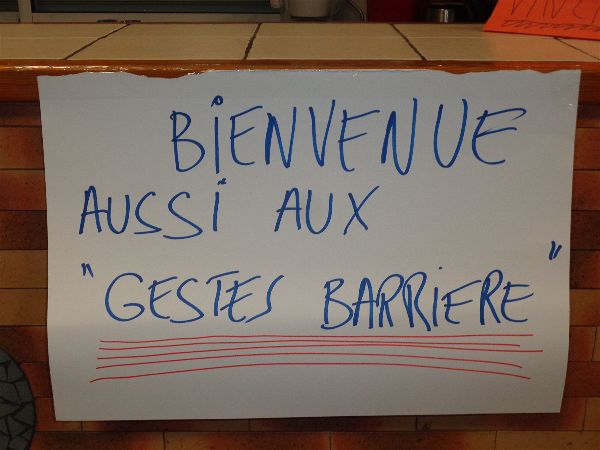 BiENVENUE
AUSSi AUX
"GESTES BARRIERE"